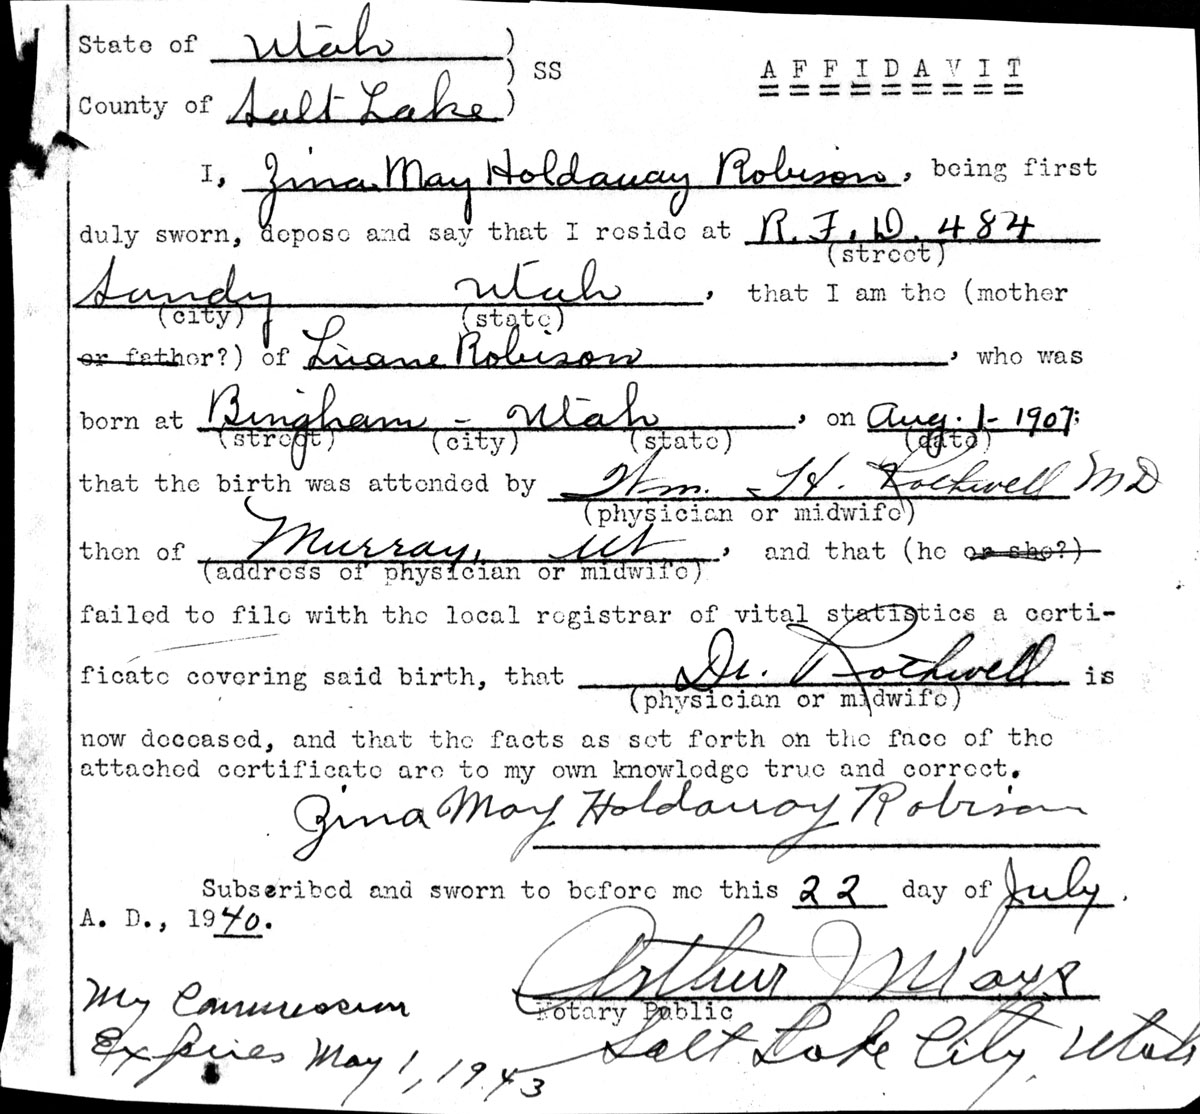 State of Utah )
) SS
A F F I D A V I T
County of Salt Lake )
I, Zina May Holdaway Robison, being first
duly sworn, depose and say that I reside at R. F. D. 484
(street)
Sandy Utah, that I am the (mother
(city) (state)
or father?) of Luane Robison, who was
born at Bingham - Utah, on Aug. 1 - 1907;
(street) (city) (state) (date)
that the birth was attended by Wm. H. Rothwell MD
(physician or midwife)
then of Murray, Ut, and that (he or she?)
(address of physician or midwife)
failed to file with the local registrar of vital statistics a certi-
ficate covering said birth, that Dr. Rothwell is
(physician or midwife)
now deceased, and that the facts as set forth on the face of the
attached certificate are to my own knowledge true and correct.
Zina May Holdaway Robison
Subscribed and sworn to before me this 22 day of July.
A. D., 1940.
Arthur J Mays
Notary Public
My Commission
Salt Lake City, Utah
Expires May 1, 1943